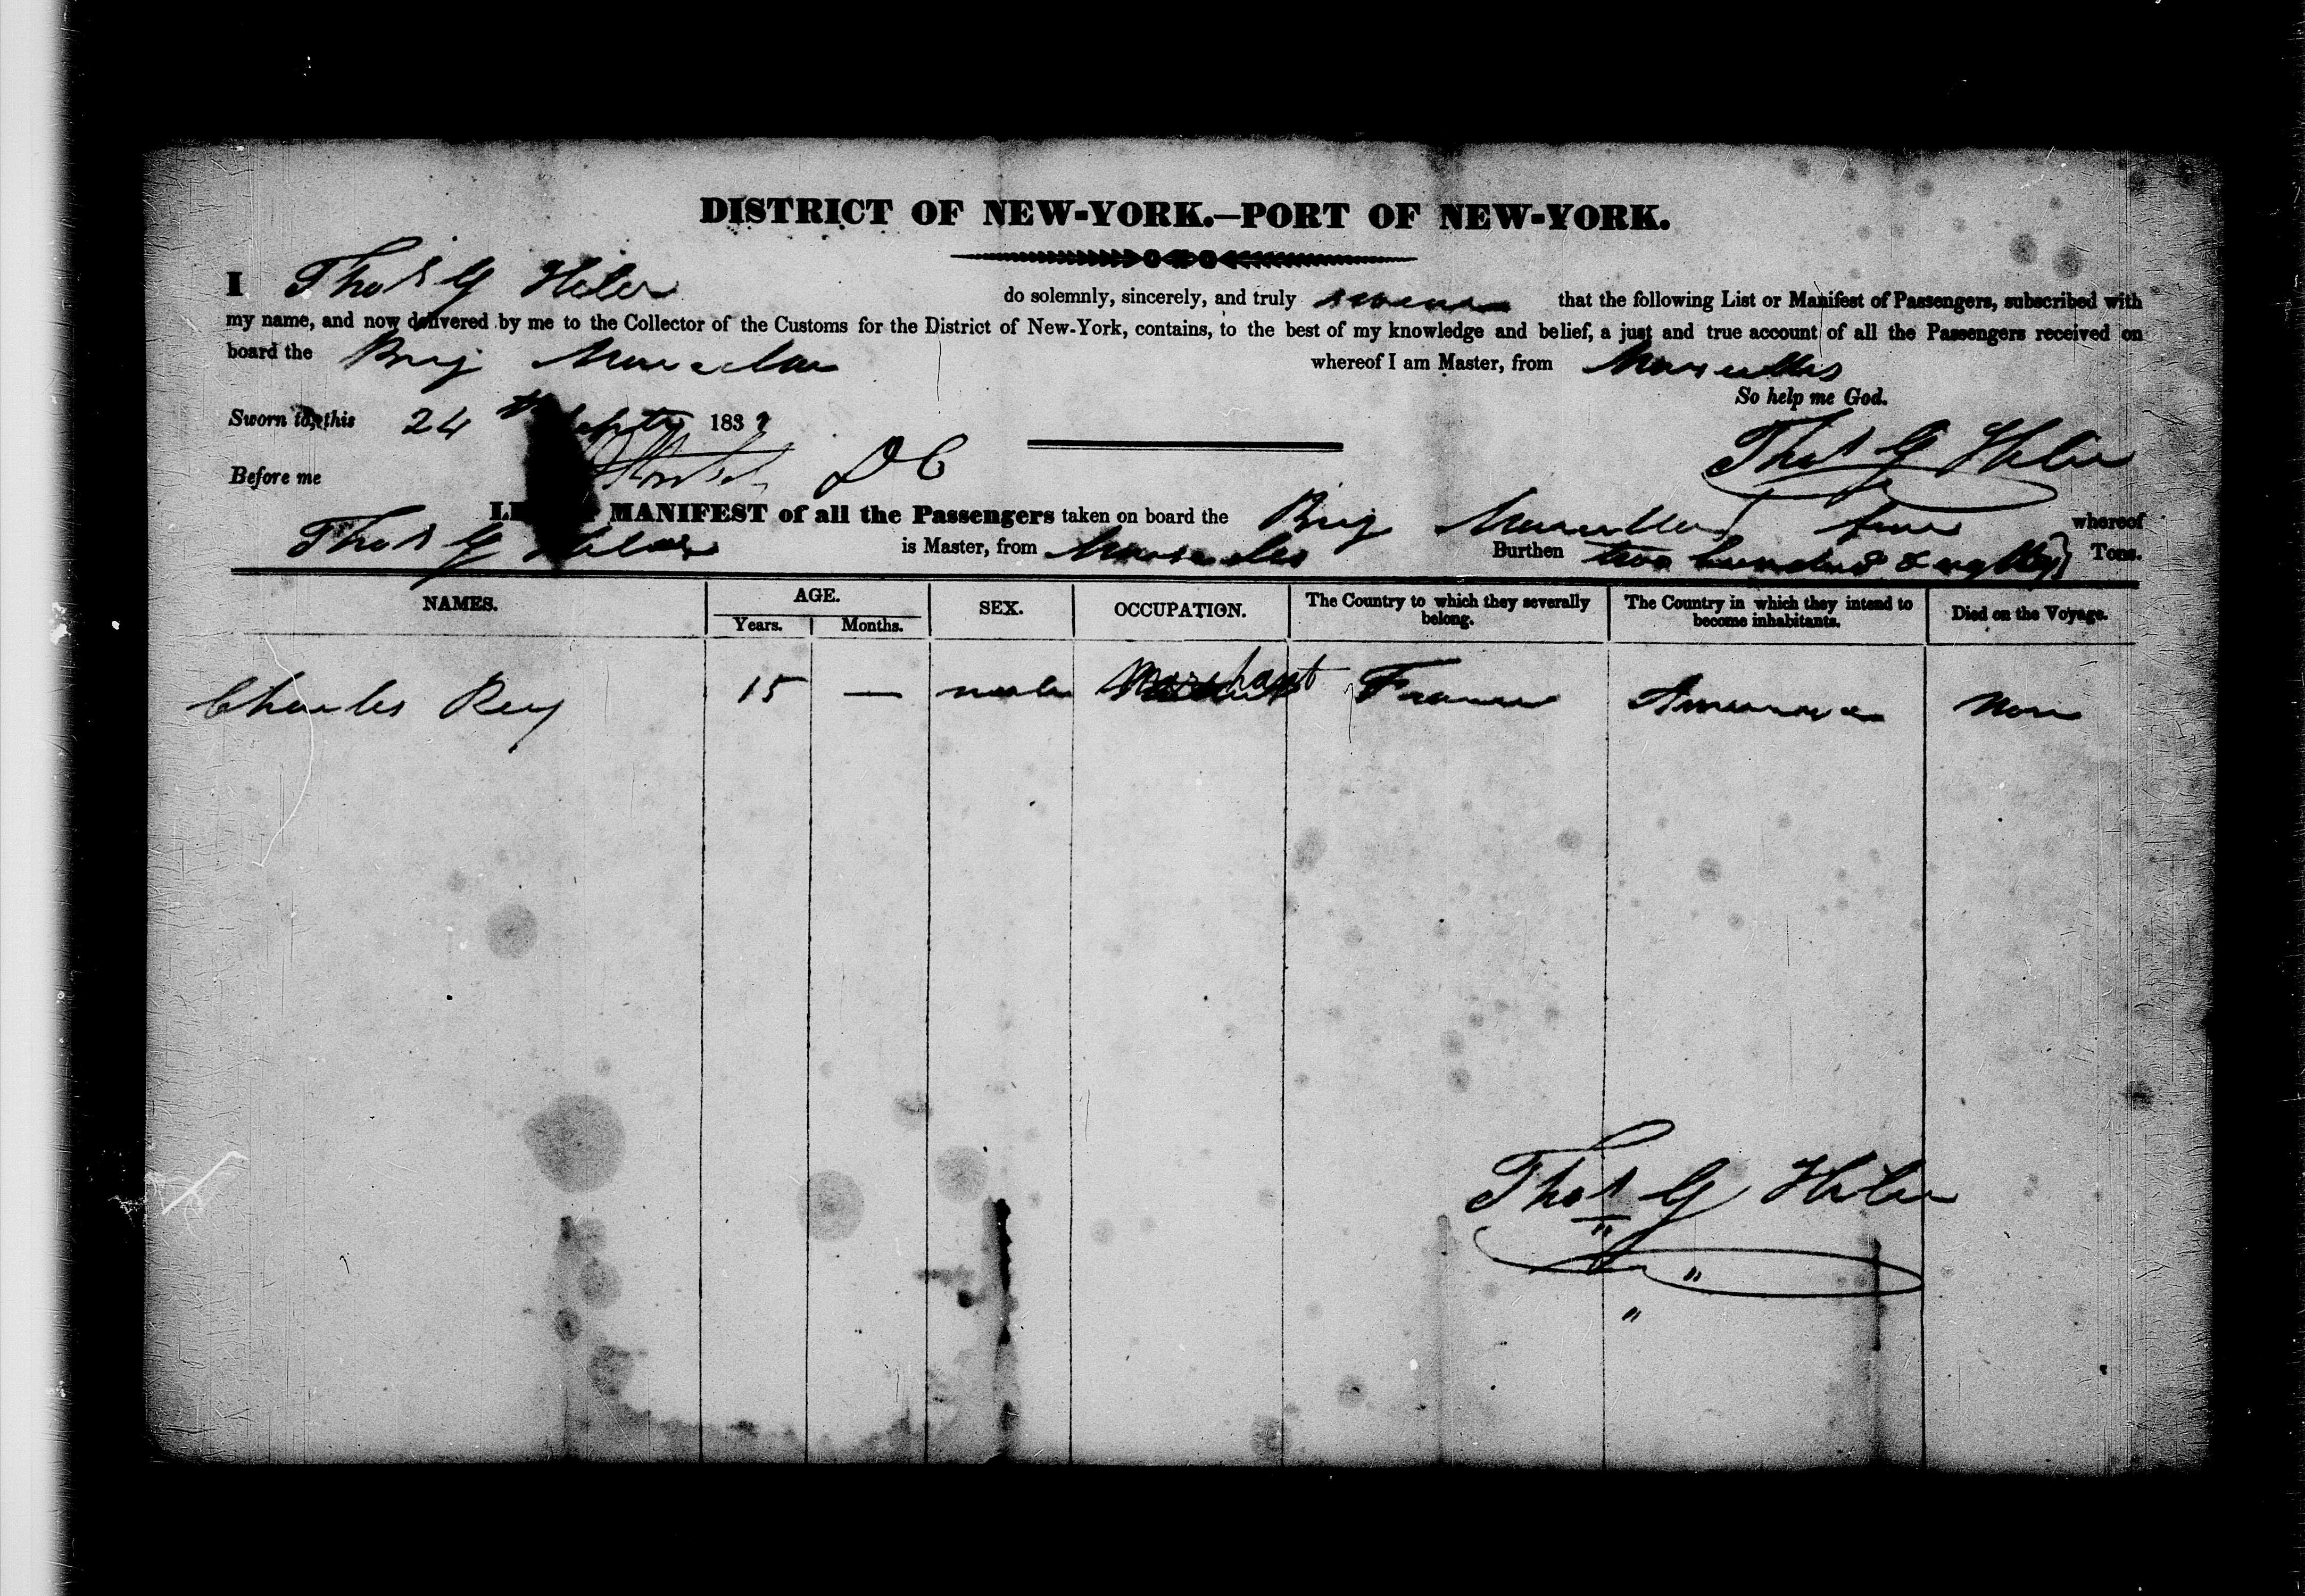 DISTRICT OF NEW-YORK.—PORT OF NEW-YORK.
I Thos G Hiler do solemnly, sincerely, and truly swear that the following List or Manifest of Passengers, subscribed with
my name, and now delivered by me to the Collector of the Customs for the District of New-York, contains, to the best of my knowledge and belief, a just and true account of all the Passengers received on
board the Brig whereof I am Master, from Marseilles
So help me God.
Sworn to this 24th Septr 183
Thos G Hiler
Before me DC
MANIFEST of all the Passengers taken on board the Brig whereof
Thos G Hiler is Master, from Marseilles Burthen two hundred & eighty Tons.
NAMES. AGE. SEX. OCCUPATION. The Country to which they severally belong. The Country in which they intend to become inhabitants. Died on the Voyage.
Years. Months.
Charles Rey 15 — male Merchant France America None
Thos G Hiler